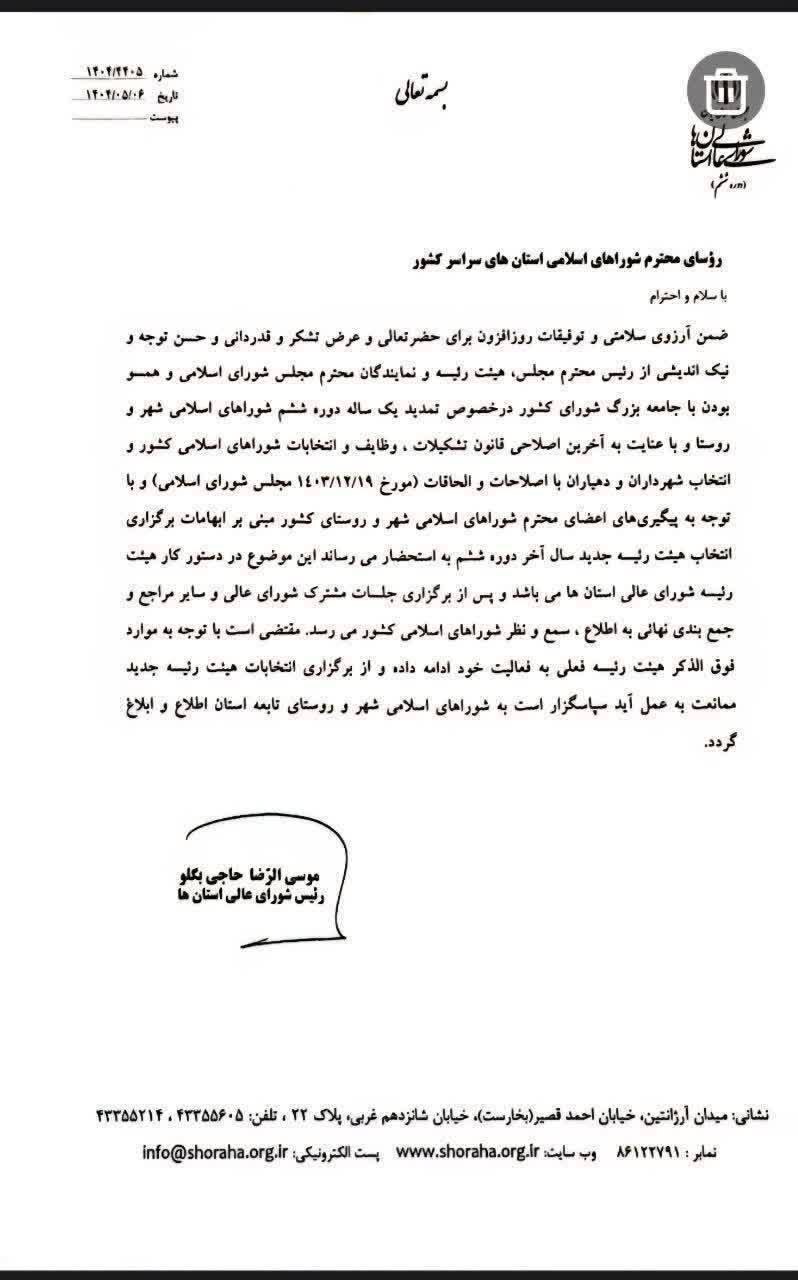 بسمه تعالی
شماره ۱۴۰۴/۴۴۰۵
تاریخ ۱۴۰۴/۰۵/۰۶
پیوست
شورای عالی استان‌ها
(دوره ششم)
رؤسای محترم شوراهای اسلامی استان های سراسر کشور
با سلام و احترام
ضمن آرزوی سلامتی و توفیقات روزافزون برای حضرتعالی و عرض تشکر و قدردانی و حسن توجه و
نیک اندیشی از رئیس محترم مجلس، هیئت رئیسه و نمایندگان محترم مجلس شورای اسلامی و همسو
بودن با جامعه بزرگ شورای کشور درخصوص تمدید یک ساله دوره ششم شوراهای اسلامی شهر و
روستا و با عنایت به آخرین اصلاحی قانون تشکیلات ، وظایف و انتخابات شوراهای اسلامی کشور و
انتخاب شهرداران و دهیاران با اصلاحات و الحاقات (مورخ ۱۴۰۳/۱۲/۱۹ مجلس شورای اسلامی) و با
توجه به پیگیری‌های اعضای محترم شوراهای اسلامی شهر و روستای کشور مبنی بر ابهامات برگزاری
انتخاب هیئت رئیسه جدید سال آخر دوره ششم به استحضار می رساند این موضوع در دستور کار هیئت
رئیسه شورای عالی استان ها می باشد و پس از برگزاری جلسات مشترک شورای عالی و سایر مراجع و
جمع بندی نهائی به اطلاع ، سمع و نظر شوراهای اسلامی کشور می رسد. مقتضی است با توجه به موارد
فوق الذکر هیئت رئیسه فعلی به فعالیت خود ادامه داده و از برگزاری انتخابات هیئت رئیسه جدید
ممانعت به عمل آید سپاسگزار است به شوراهای اسلامی شهر و روستای تابعه استان اطلاع و ابلاغ
گردد.
موسی الرّضا حاجی بگلو
رئیس شورای عالی استان ها
نشانی: میدان آرژانتین، خیابان احمد قصیر(بخارست)، خیابان شانزدهم غربی، پلاک ۲۲ ، تلفن: ۴۳۳۵۵۶۰۵ ، ۴۳۳۵۵۲۱۴
نمابر : ۸۶۱۲۲۷۹۱ وب سایت: www.shoraha.org.ir پست الکترونیکی: info@shoraha.org.ir